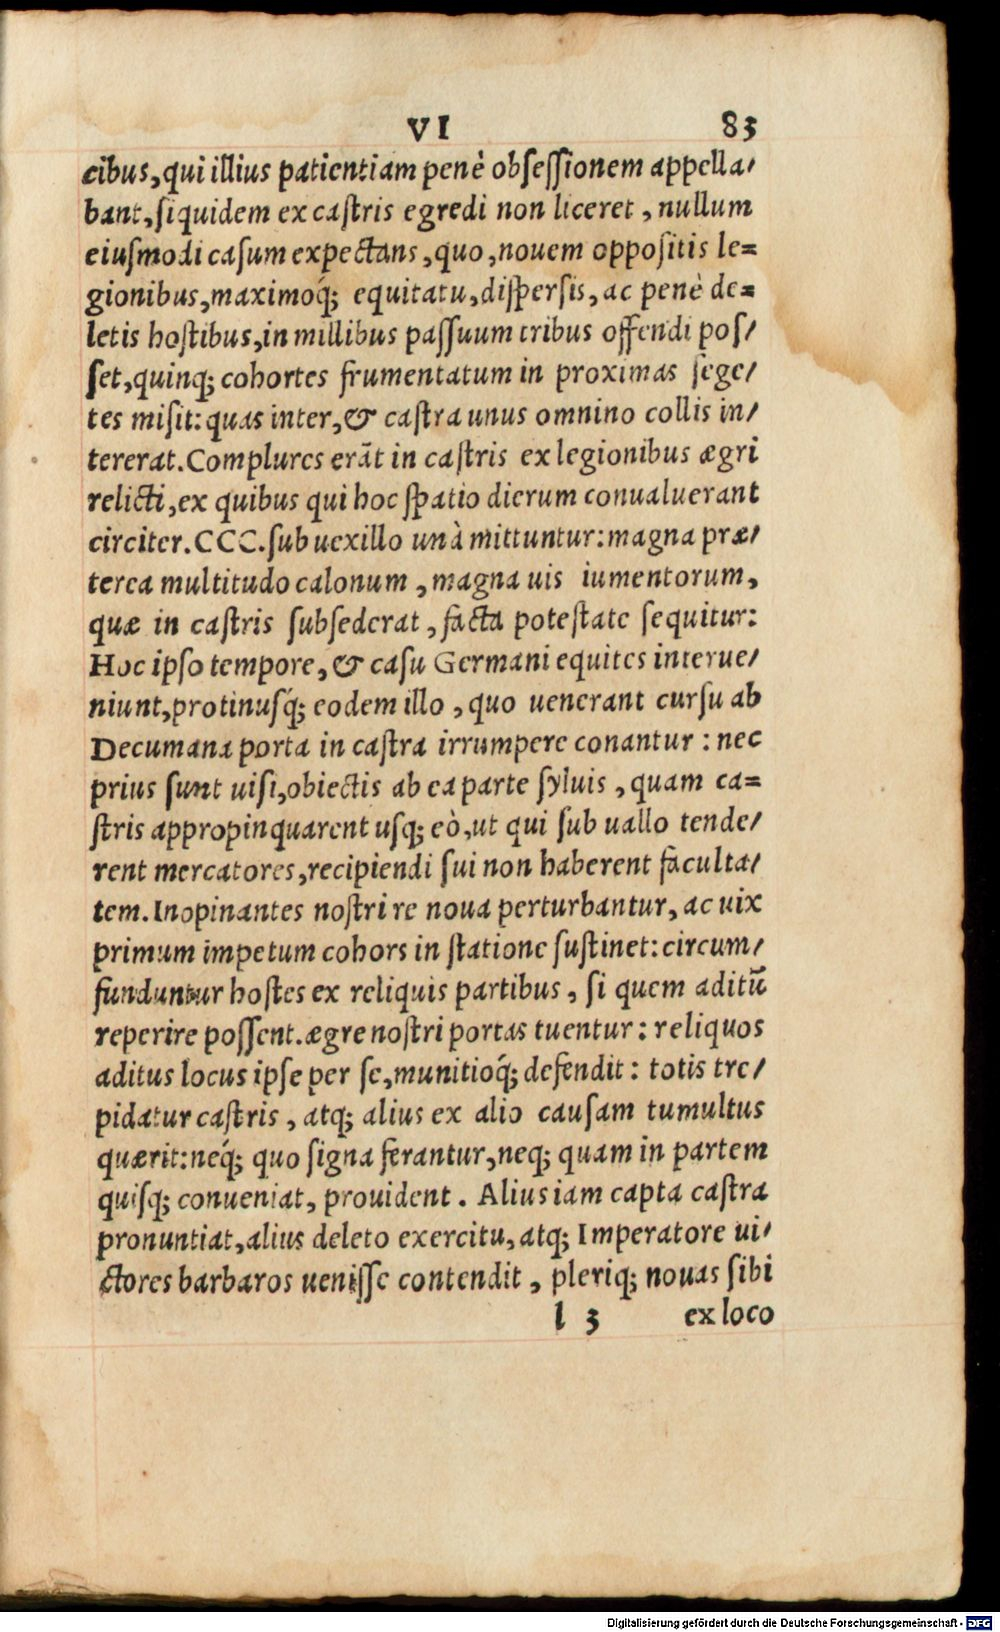 VI 83
cibus, qui illius patientiam penè obseſſionem appella/
bant, ſiquidem ex caſtris egredi non liceret, nullum
eiuſmodi caſum expectans, quo, nouem oppoſitis le=
gionibus, maximoq́; equitatu, diſperſis, ac penè de=
letis hoſtibus, in millibus paſſuum tribus offendi poſ/
ſet, quinq; cohortes frumentatum in proximas ſege/
tes miſit: quas inter, & caſtra unus omnino collis in/
tererat. Complures erāt in caſtris ex legionibus ægri
relicti, ex quibus qui hoc ſpatio dierum conualuerant
circiter. CCC. ſub uexillo unà mittuntur: magna præ/
terea multitudo calonum, magna uis iumentorum,
quæ in caſtris ſubſederat, facta poteſtate ſequitur:
Hoc ipſo tempore, & caſu Germani equites interue/
niunt, protinuſq́; eodem illo, quo uenerant curſu ab
Decumana porta in caſtra irrumpere conantur: nec
prius ſunt uiſi, obiectis ab ea parte ſyluis, quam ca=
ſtris appropinquarent uſq; eò, ut qui ſub uallo tende/
rent mercatores, recipiendi ſui non haberent faculta/
tem. Inopinantes noſtri re noua perturbantur, ac uix
primum impetum cohors in ſtatione ſuſtinet: circum/
funduntur hoſtes ex reliquis partibus, ſi quem aditū
reperire poſſent. ægre noſtri portas tuentur: reliquos
aditus locus ipſe per ſe, munitioq́; defendit: totis tre/
pidatur caſtris, atq; alius ex alio cauſam tumultus
quærit: neq́; quo ſigna ferantur, neq; quam in partem
quiſq; conueniat, prouident. Alius iam capta caſtra
pronuntiat, alius deleto exercitu, atq; Imperatore ui/
ctores barbaros ueniſſe contendit, pleriq; nouas ſibi
l 3 ex loco
Digitalisierung gefördert durch die Deutsche Forschungsgemeinschaft - DFG